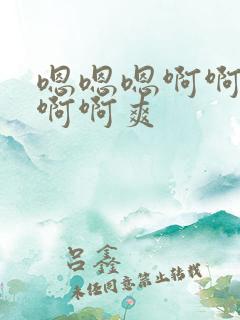 嗯嗯嗯啊啊
啊啊爽
吕鑫
未经同意禁止转载